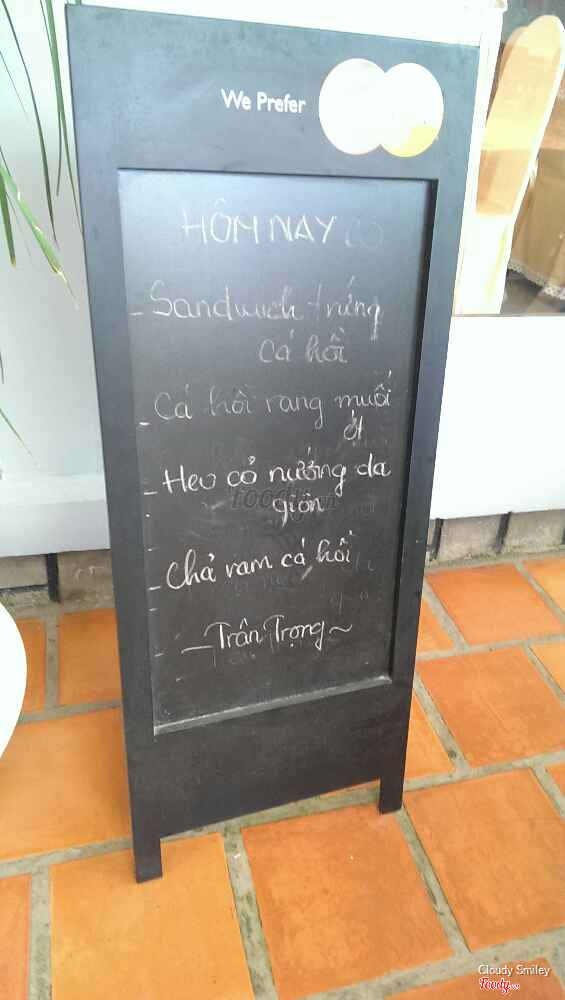 We Prefer
HÔM NAY CÓ
- Sandwich trứng
cá hồi
- Cá hồi rang muối
ớt
- Heo cỏ nướng da
giòn
- Chả ram cá hồi
- Trân Trọng ~
Foody.vn
Cloudy Smiley
Foody.vn